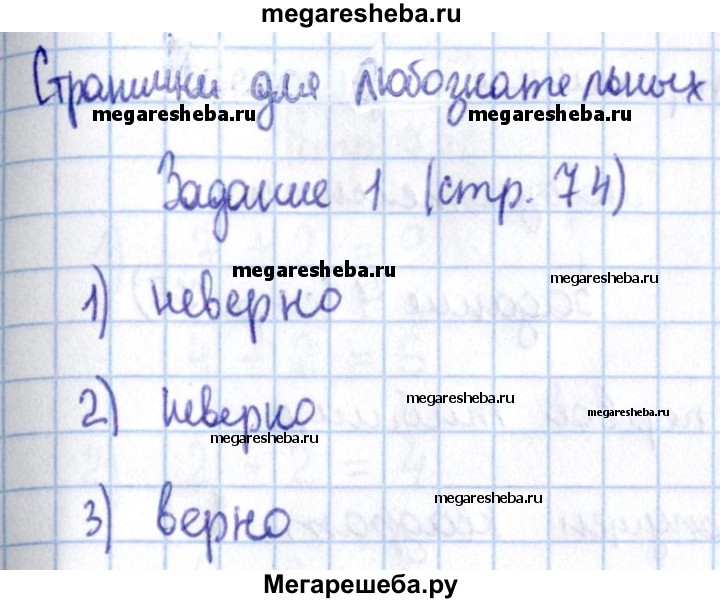 megaresheba.ru
Странички для любознательных
megaresheba.ru megaresheba.ru
Задание 1 (стр. 74)
megaresheba.ru megaresheba.ru
1) неверно
megaresheba.ru megaresheba.ru
2) неверно
megaresheba.ru
megaresheba.ru
3) верно
Мегарешеба.ру